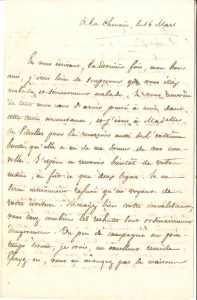 À la Chenaie, le 16 Mars
En vous écrivant, la dernière fois, mon bon
ami, j'étois loin de soupçonner que vous étiez
malade, et sérieusement malade. Je vous remercie
de tout mon cœur d'avoir pensé à moi, dans
cette triste circonstance, et j'écris à Mad.elle
de pour la remercier aussi de l'extrême
bonté qu'elle a eu de me donner de vos nou-
velles. J'espère en recevoir bientôt de votre
main, ne fût-ce que deux lignes. Je ne
serai entièrement rassuré qu'en voyant de
votre écriture. Ménagez bien votre convalescence,
vous savez combien les rechutes sont ordinairement
dangereuses. Un peu de campagne au prin-
temps seroit, je crois, un excellent remède
chez vous ne manquez pas de maisons